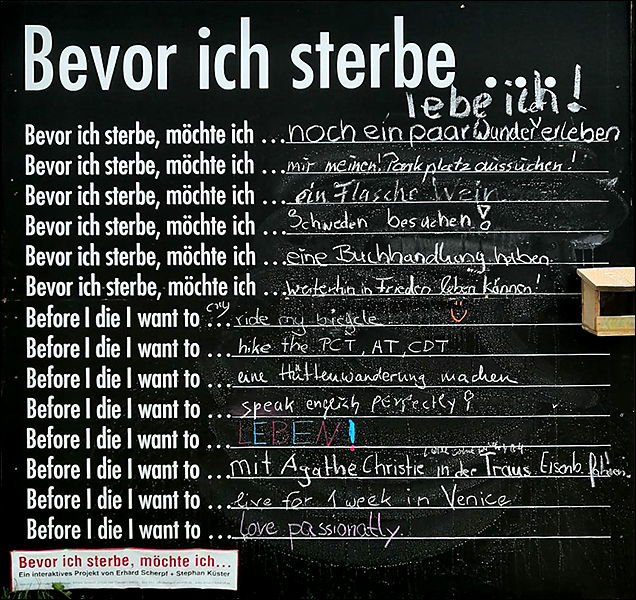 Bevor ich sterbe ...
lebe ich!
Bevor ich sterbe, möchte ich ... noch ein paar Wunder erleben
Bevor ich sterbe, möchte ich ... mir meinen Parkplatz aussuchen!
Bevor ich sterbe, möchte ich ... ein Flasche Wein
Bevor ich sterbe, möchte ich ... Schweden besuchen!
Bevor ich sterbe, möchte ich ... eine Buchhandlung haben
Bevor ich sterbe, möchte ich ... weiterhin in Frieden leben können!
Before I die I want to ... ride my bicycle
Before I die I want to ... hike the PCT, AT, CDT
Before I die I want to ... eine Hüttenwanderung machen
Before I die I want to ... speak english perfectly!
Before I die I want to ... LEBEN!
Before I die I want to ... mit Agathe Christie in der Trans. Eisenb. fahren.
Before I die I want to ... live for 1 week in Venice
Before I die I want to ... love passionatly
Bevor ich sterbe, möchte ich...
Ein interaktives Projekt von Erhard Scherpf + Stephan Küster